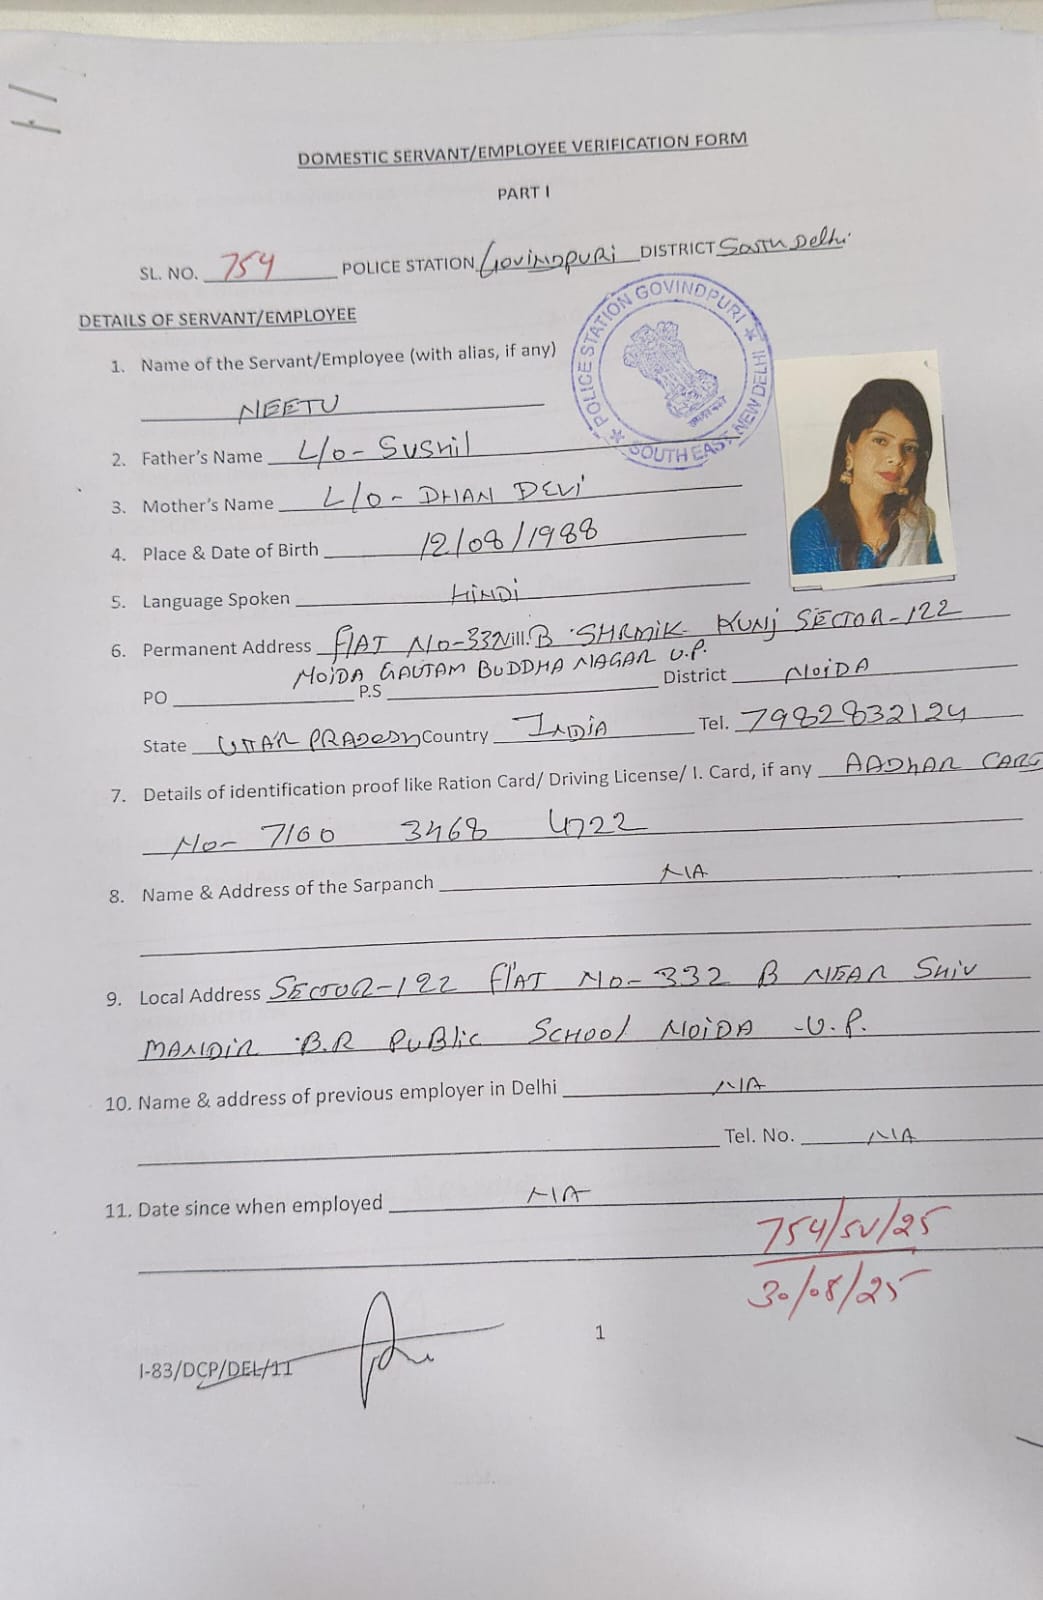 DOMESTIC SERVANT/EMPLOYEE VERIFICATION FORM
PART I
SL. NO. 754 POLICE STATION GOVINDPURI DISTRICT South Delhi
POLICE STATION GOVINDPURI SOUTH EAST NEW DELHI
DETAILS OF SERVANT/EMPLOYEE
1. Name of the Servant/Employee (with alias, if any)
NEETU
2. Father's Name L/o- SUSHIL
3. Mother's Name L/o- DHAN DEVI
4. Place & Date of Birth 12/08/1988
5. Language Spoken HINDI
6. Permanent Address FLAT NO-332 B SHRMIK KUNJ SECTOR-122
NOIDA GAUTAM BUDDHA NAGAR U.P.
PO P.S District NOIDA
State UTTAR PRADESH Country INDIA Tel. 7982832124
7. Details of identification proof like Ration Card/ Driving License/ I. Card, if any AADHAR CARD
No- 7160 3468 4722
8. Name & Address of the Sarpanch NIA
9. Local Address SECTOR-122 FLAT NO-332 B NEAR SHIV
MANDIR B.R PUBLIC SCHOOL NOIDA U.P.
10. Name & address of previous employer in Delhi NIA
Tel. No. NIA
11. Date since when employed NIA
754/SV/25
30/08/25
1
I-83/DCP/DEL/11